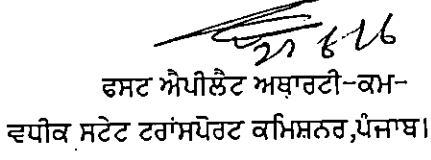 27/6/16
ਫਸਟ ਐਪੀਲੈਟ ਅਥਾਰਟੀ-ਕਮ-
ਵਧੀਕ ਸਟੇਟ ਟਰਾਂਸਪੋਰਟ ਕਮਿਸ਼ਨਰ,ਪੰਜਾਬ।